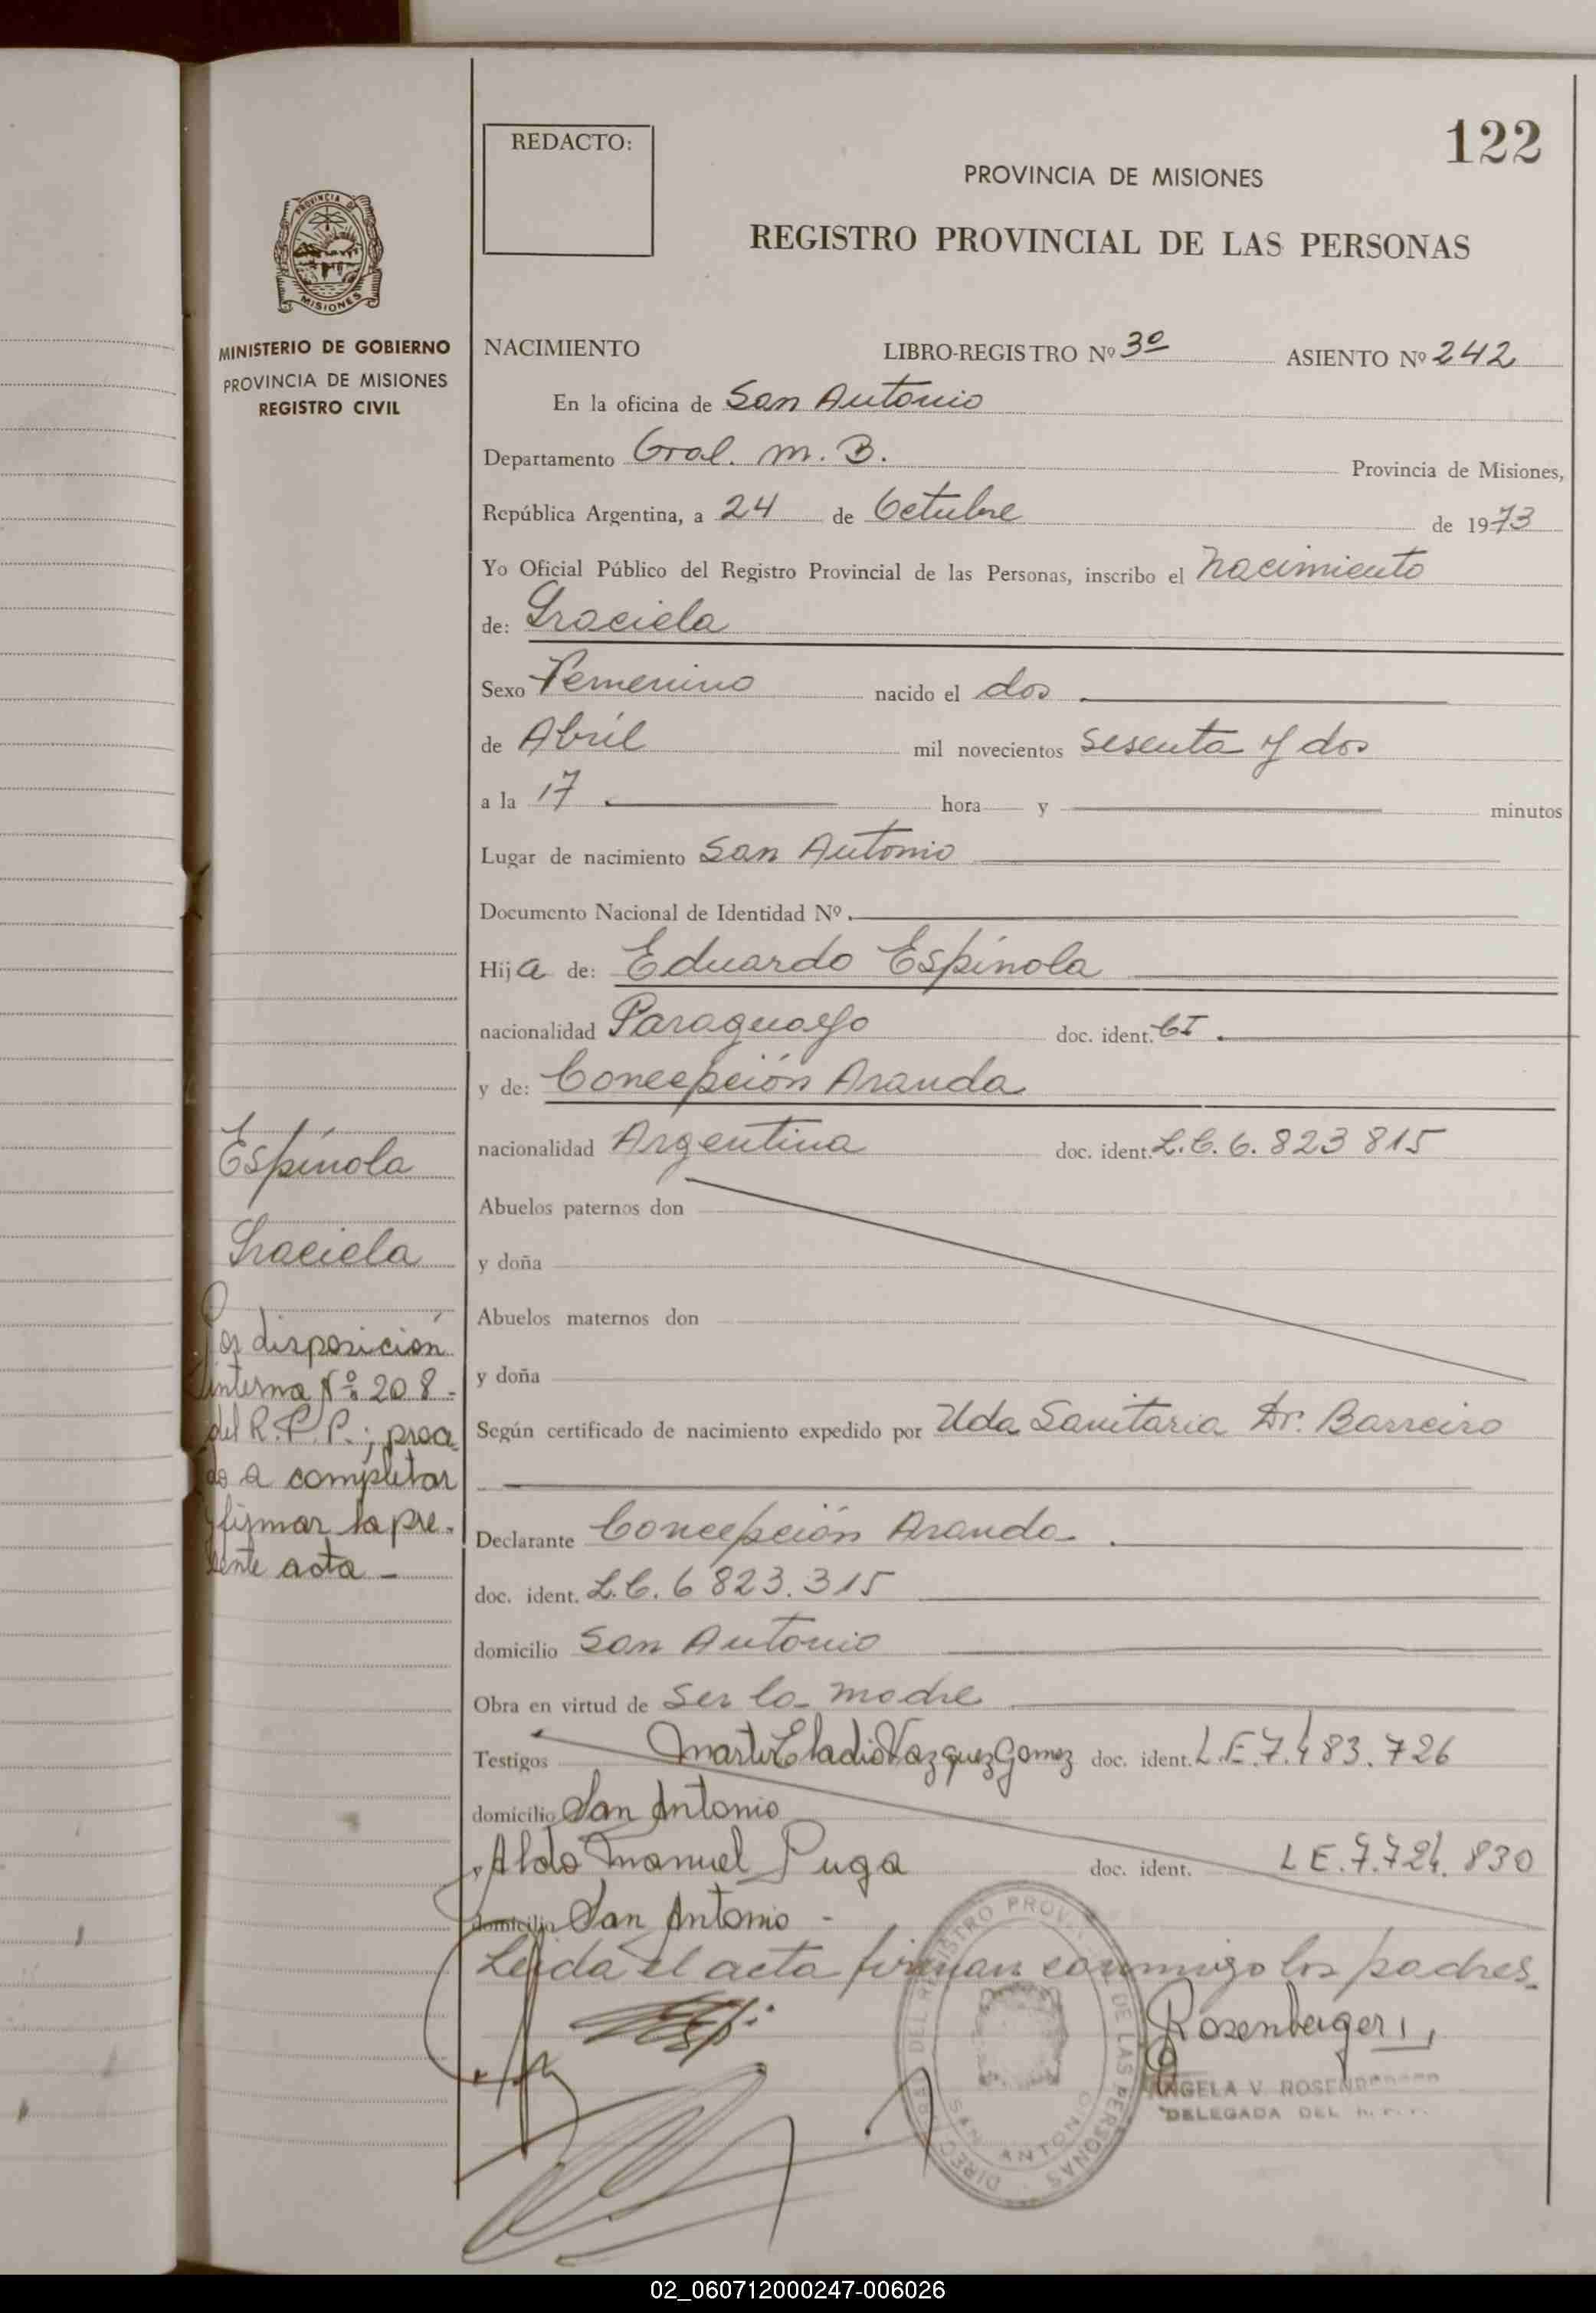 122
REDACTO:
PROVINCIA DE MISIONES
REGISTRO PROVINCIAL DE LAS PERSONAS
PROVINCIA DE
MISIONES
MINISTERIO DE GOBIERNO
PROVINCIA DE MISIONES
REGISTRO CIVIL
NACIMIENTO LIBRO-REGISTRO Nº 3º ASIENTO Nº 242
En la oficina de San Antonio
Departamento Gral. M. B. Provincia de Misiones,
República Argentina, a 24 de Octubre de 1973
Yo Oficial Público del Registro Provincial de las Personas, inscribo el Nacimiento
de: Graciela
Sexo Femenino nacido el dos
de Abril mil novecientos sesenta y dos
a la 17 hora y minutos
Lugar de nacimiento San Antonio
Documento Nacional de Identidad Nº
Hija de: Eduardo Espínola
nacionalidad Paraguayo doc. ident. CI
y de: Concepción Aranda
nacionalidad Argentina doc. ident. L.C. 6.823815
Abuelos paternos don
y doña
Abuelos maternos don
y doña
Según certificado de nacimiento expedido por Uda Sanitaria Dr. Barreiro
Declarante Concepción Aranda
doc. ident. L.C. 6823.315
domicilio San Antonio
Obra en virtud de Ser la madre
Testigos Martir Eladio Vazquez Gomez doc. ident. L.E. 7.483.726
domicilio San Antonio
y Aldo Manuel Puga doc. ident. L E. 7.724.830
domicilio San Antonio -
Leida el acta firman conmigo los padres.
Espínola
Graciela
Por disposición
interna Nº 208-
del R.P.P.; proce
do a completar
y firmar la pre-
sente acta -
Rosenberger
ANGELA V. ROSENBERGER
DELEGADA DEL R.P.P.
DIREC DEL REGISTRO PROV. DE LAS PERSONAS
SAN ANTONIO
02_060712000247-006026